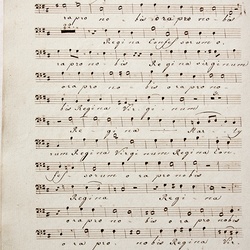 ra pro no - bis ora pro no bis
Regina Confessorum o
ra pro no - bis Regina virginum
ora pro no - bis ora pro no -
bis Regina Virginum
Regina Mar - ty
rum Regina Virginum Regina Con -
fessorum o ra pro nobis
Regina Regina
ora pro no - bis ora pro nobis
ora pro - nobis Regina Vi